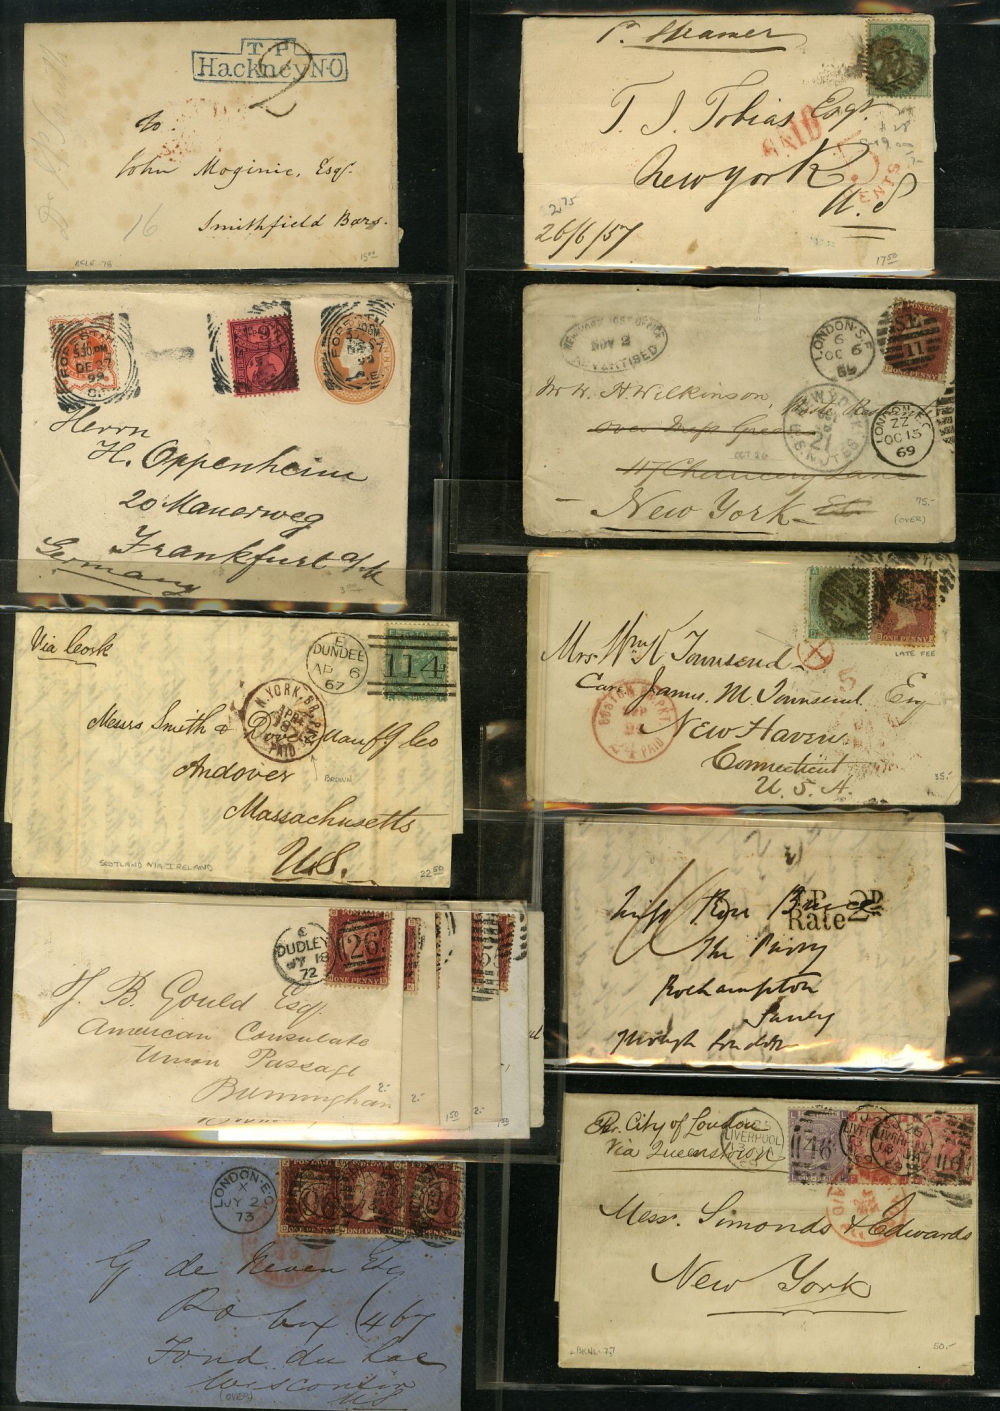 T.P
Hackney N.O
2
To.
John Moginie, Esqr.
Smithfield Bars.
16
15.00
FOREST HILL
5.30 PM
DE 27
99
Herrn
H. Oppenheim
20 Mauerweg
Frankfurt a/M
Germany
Via Cork
DUNDEE
AP 6
67
114
N. YORK. BR. PKT
PAID
Messrs Smith & Dove Manuff Co
Andover
BROWN
Massachusetts
U.S.
SCOTLAND VIA IRELAND
22.50
DUDLEY
JY 18
72
26
ONE PENNY
J. B. Gould Esq.
American Consulate
Union Passage
Birmingham
2.-
2.-
1.50
2.-
LONDON. E.C
X
JY 2
73
G de Neven Esq
PO box 1467
Fond du Lac
Wisconsin
(OVER)
US
P. Steamer
T. J. Tobias Esqr.
PAID
CENTS
New York
U. S
2.75
26/6/57
17.50
NEW YORK POST OFFICE
NOV 2
ADVERTISED
LONDON. S.E
6
OC 6
69
11
Mr W. H. Wilkinson,
NEW YORK
U.S. NOTES
21
OCT 26
LONDON. E.C
ZZ
OC 15
69
New York
75.-
(OVER)
ONE PENNY
LATE FEE
Mrs. Wm K Townsend
Care James M. Townsend Esq
BOSTON BR. PKT
PAID
5
New Haven
Connecticut
U. S. A.
35.-
Miss Rose Bruce
T.P
Rate 2D
The Priory
Roehampton
Surrey
through London
Per City of London
Via Queenstown
LIVERPOOL
466
Messr. Simonds & Edwards
New York
50.-